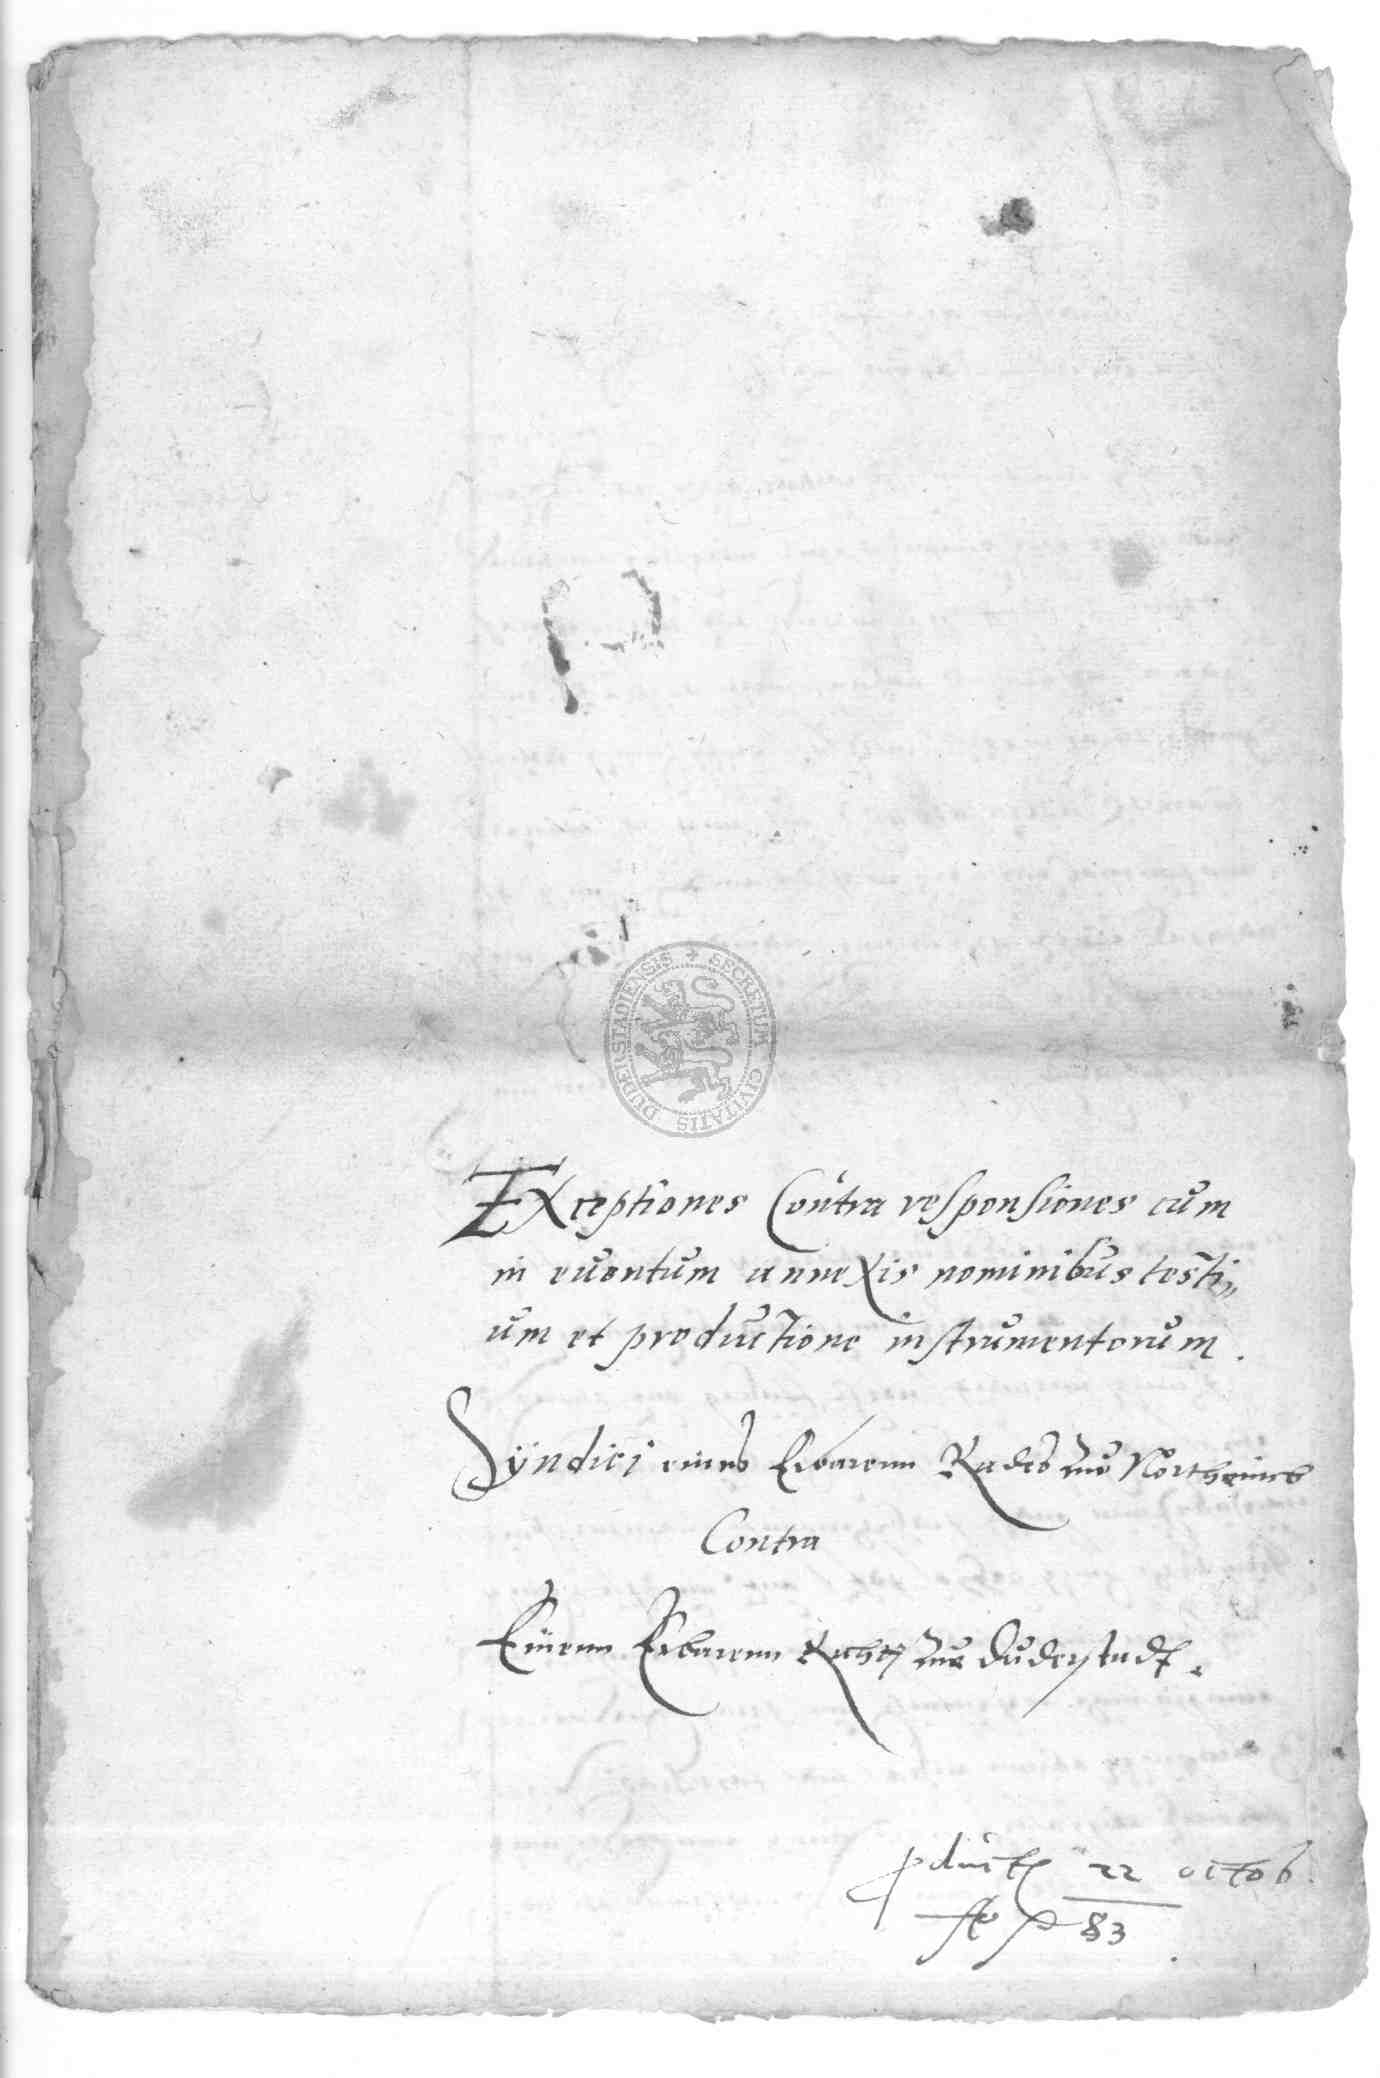 SECRETUM CIVITATIS DUDERSTADIENSIS
Exceptiones Contra responsiones cum
in euentum annexis nominibus testi„
um et productione instrumentorum.
Syndici eines Erbarenn Rades zue Northeimb
Contra
Einenn Erbarenn Rath zue Duderstadt.
22 octob
83